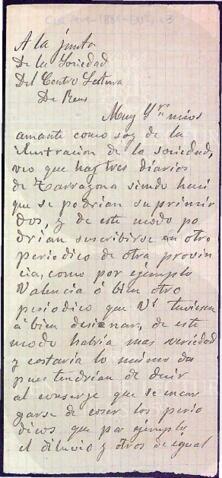 A la junta
De la Sociedad
Del Centro Lectura
De Reus
Muy Sres mios
amante como soy de la
ilustracion de la sociedad,
veo que hay tres diarios
de Tarragona siendo haci
que se podrian suprimir
dos, y de este módo po
drian suscribirse en otro
periodico de otra provin
cia, como por ejemplo
Valencia ó bien otro
periodico que Vs tuviesen
á bien designar, de este
modo habria mas variedad
y costaria lo mismo
pues tendrian de decir
al conserge que se encar
gase de coser los perio
dicos que por ejemplo
el diluvio y otros de igual